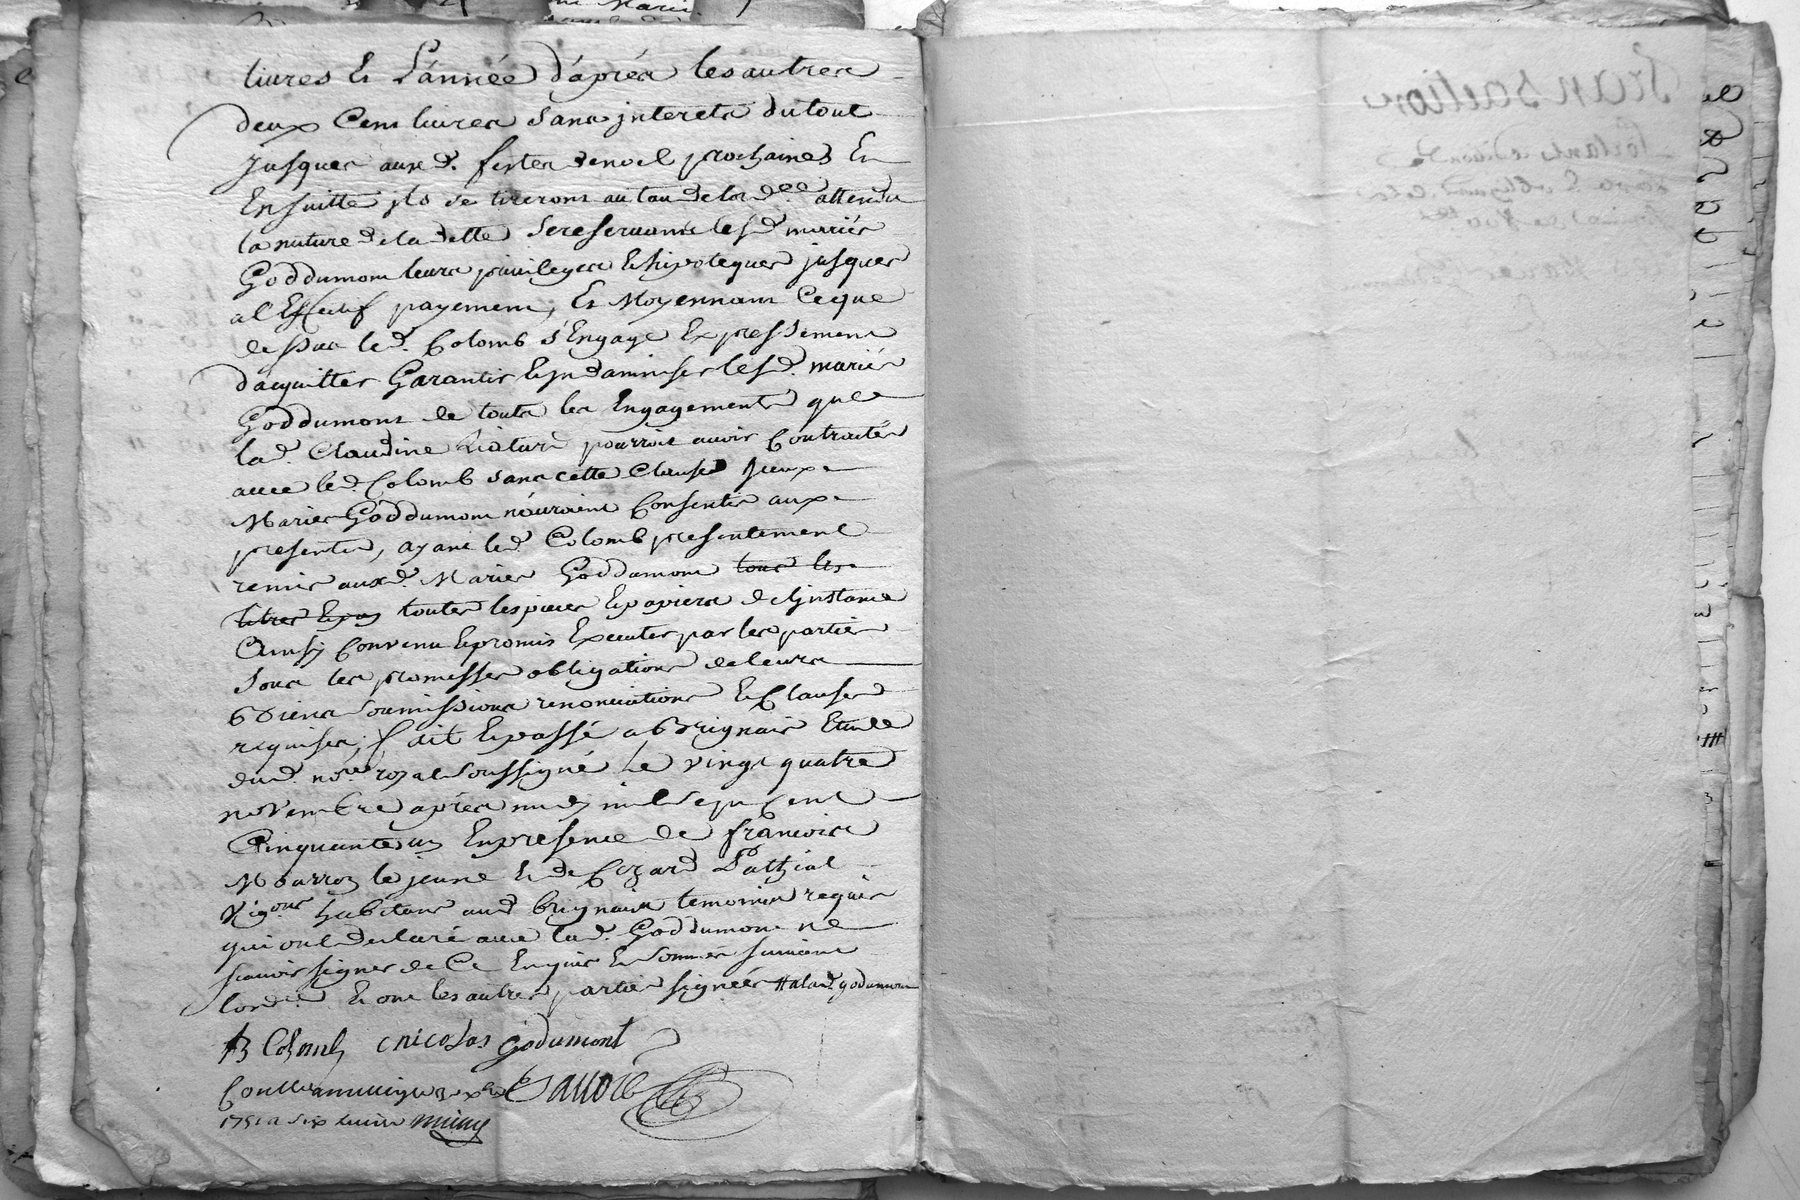 livres et L'année d'aprés les autres
deux Cens livres sans jnterets du tout
jusques auxd. festes denoel prochaines Et
Ensuitte jls se tireront au tau delord.ce attendu
la nature dela dette Se reservants lesd. mariés
Goddumont leurs privileges Ethipoteques jusques
al Effectif payement, Et Moyennant Ceque
dessus led. Colomb s'Engage Expressement
d'acquitter Garantir Et jndamniser lesd. mariés
Goddumont de touts les Engagements que
lad. Claudine pourroit avoir Contractés
avec led. Colomb sans cette Clause yceux
Mariés Goddumont n'auroient Consentis aux
presentes, ayant led. Colomb presentement
remis auxd. Mariés Goddumont tous les
titres Et pa toutes les pieces Et papiers del'jnstance
Ainsy Convenu Et promis Executer par les parties
Sous les promesses obligations de leurs
Biens Soumissions renonciations Et Clauses
requises, fait Et passé a Brignais Etude
dud. no.re royal Soussigné Le vingt quatre
novembre aprés midy mil Sept Cent
Cinquante un En presence de francois
Mourron le jeune Et de Cezard Pathial
Vig.ons habitans aud brignais temoins requis
qui ont declaré avec lad. Goddumont ne
scavoir signer de Ce Enquis Et Sommés suivant
lord.ce Et ont les autres parties signées # alad. godumont
B Colomb nicolas godumont
1751 a six livres